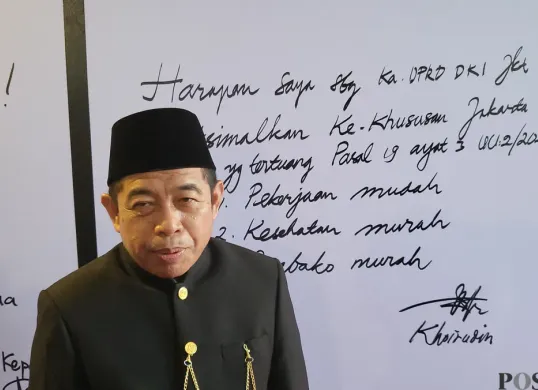 !
Harapan Saya sbg Ka. DPRD DKI Jkt
simalkan Ke-Khususan Jakarta
yg tertuang Pasal 19 ayat 3 UU.2/20
1. Pekerjaan mudah
2. Kesehatan murah
mbako murah
Khoirudin
Kep
POS